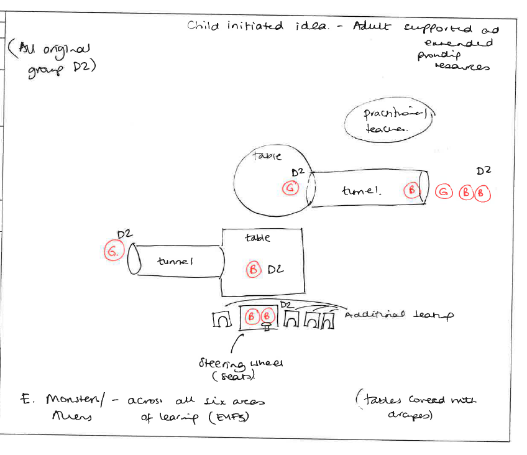 Child initiated idea. - Adult supported and
extended
providing
resources
(All original
group D2)
practitioner/
teacher.
table
D2
G
tunnel.
B
G
B
B
D2
D2
G
tunnel
table
B D2
D2
B B
Additional seating
Steering wheel
(Seats)
E. Monsters/ - across all six areas
Aliens of learning (EYFS)
(tables covered with
drapes)